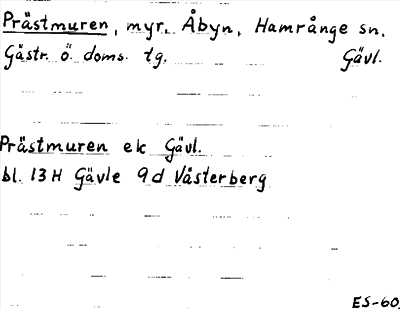 Prästmuren, myr, Åbyn, Hamrånge sn.
Gästr. ö. doms. tg. Gävl.
Prästmuren ek Gävl.
bl. 13H Gävle 9d Västerberg
ES-60.